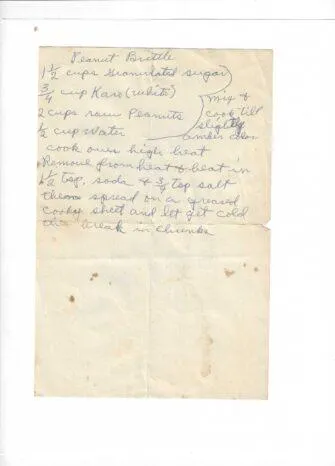 Peanut Brittle
1 1/2 cups Granulated sugar
3/4 cup Karo (white)
2 cups raw Peanuts
1/2 cup water
mix &
cook till
slightly
amber color
cook over high heat
Remove from heat & beat in
1 1/2 tsp. soda & 3/4 tsp salt
then spread on a greased
cookey sheet and let get cold
then break in chunks